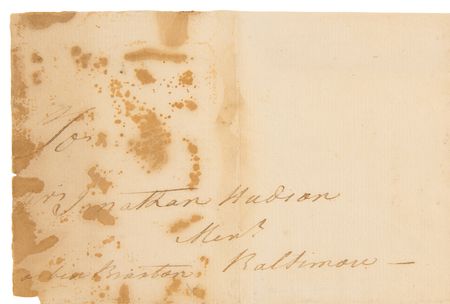 To
Mr Jonathan Hudson
Mercht
Carter Braxton Baltimore —